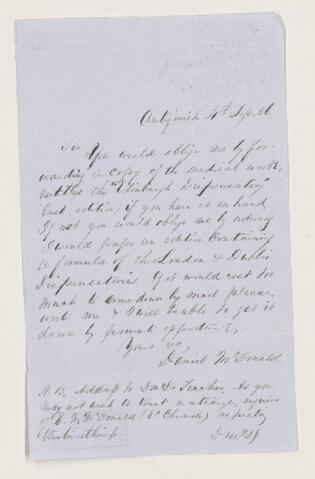 Antigonish 4th Sep. 56
Sir You would oblige me by for-
warding a copy of the medical work,
entitled the "Edinburgh Dispensatory"
last edition; if you have it on hand
If not you would oblige me by ordering
I would prefer an edition containing
a formulea of the London & Dublin
Dispensatories. If it would cost too
much to come down by mail please
write me & I will be able to get it
down by private opportunity,
Yours &c,
Daniel McDonald
N.B. Address to Teacher As you
may not wish to trust a stranger, enquire
of E. McDonald Chronicle
Trustworthiness.
D McD